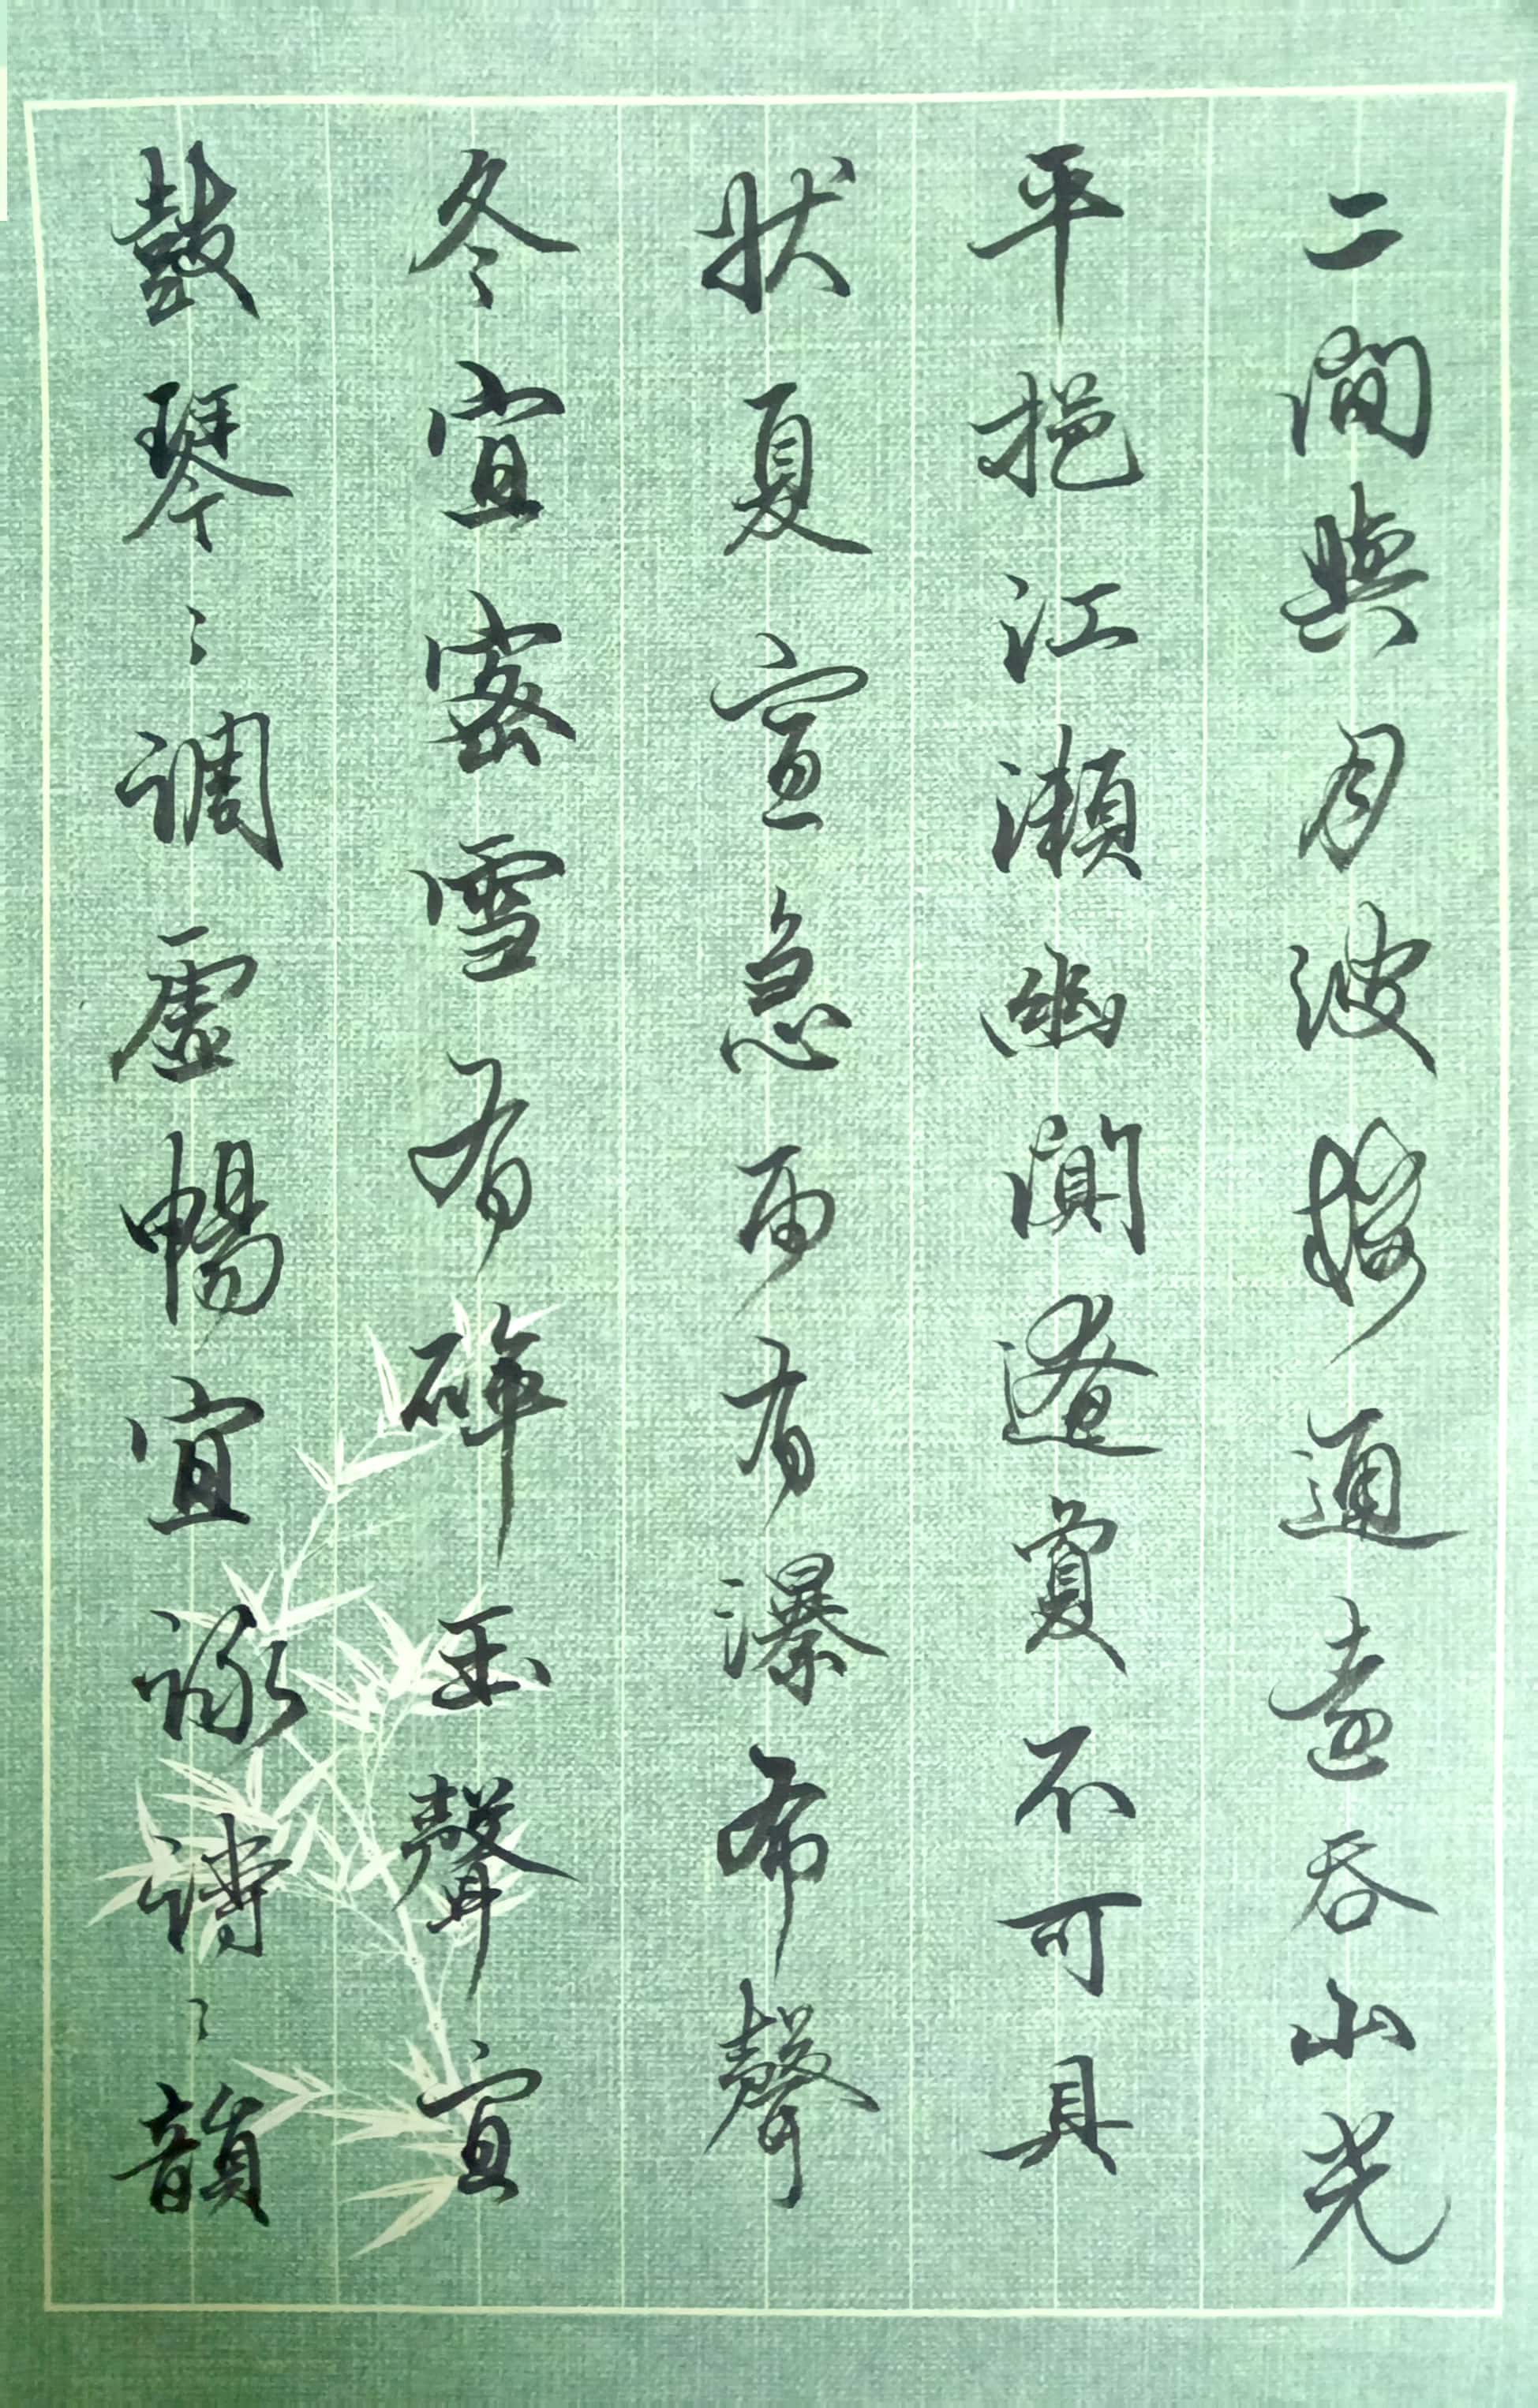 二間與月波樓通遠吞山光
平挹江瀨幽闃遼夐不可具
狀夏宜急雨有瀑布聲
冬宜密雪有碎玉聲宜
鼓琴〻調虛暢宜詠詩〻韻